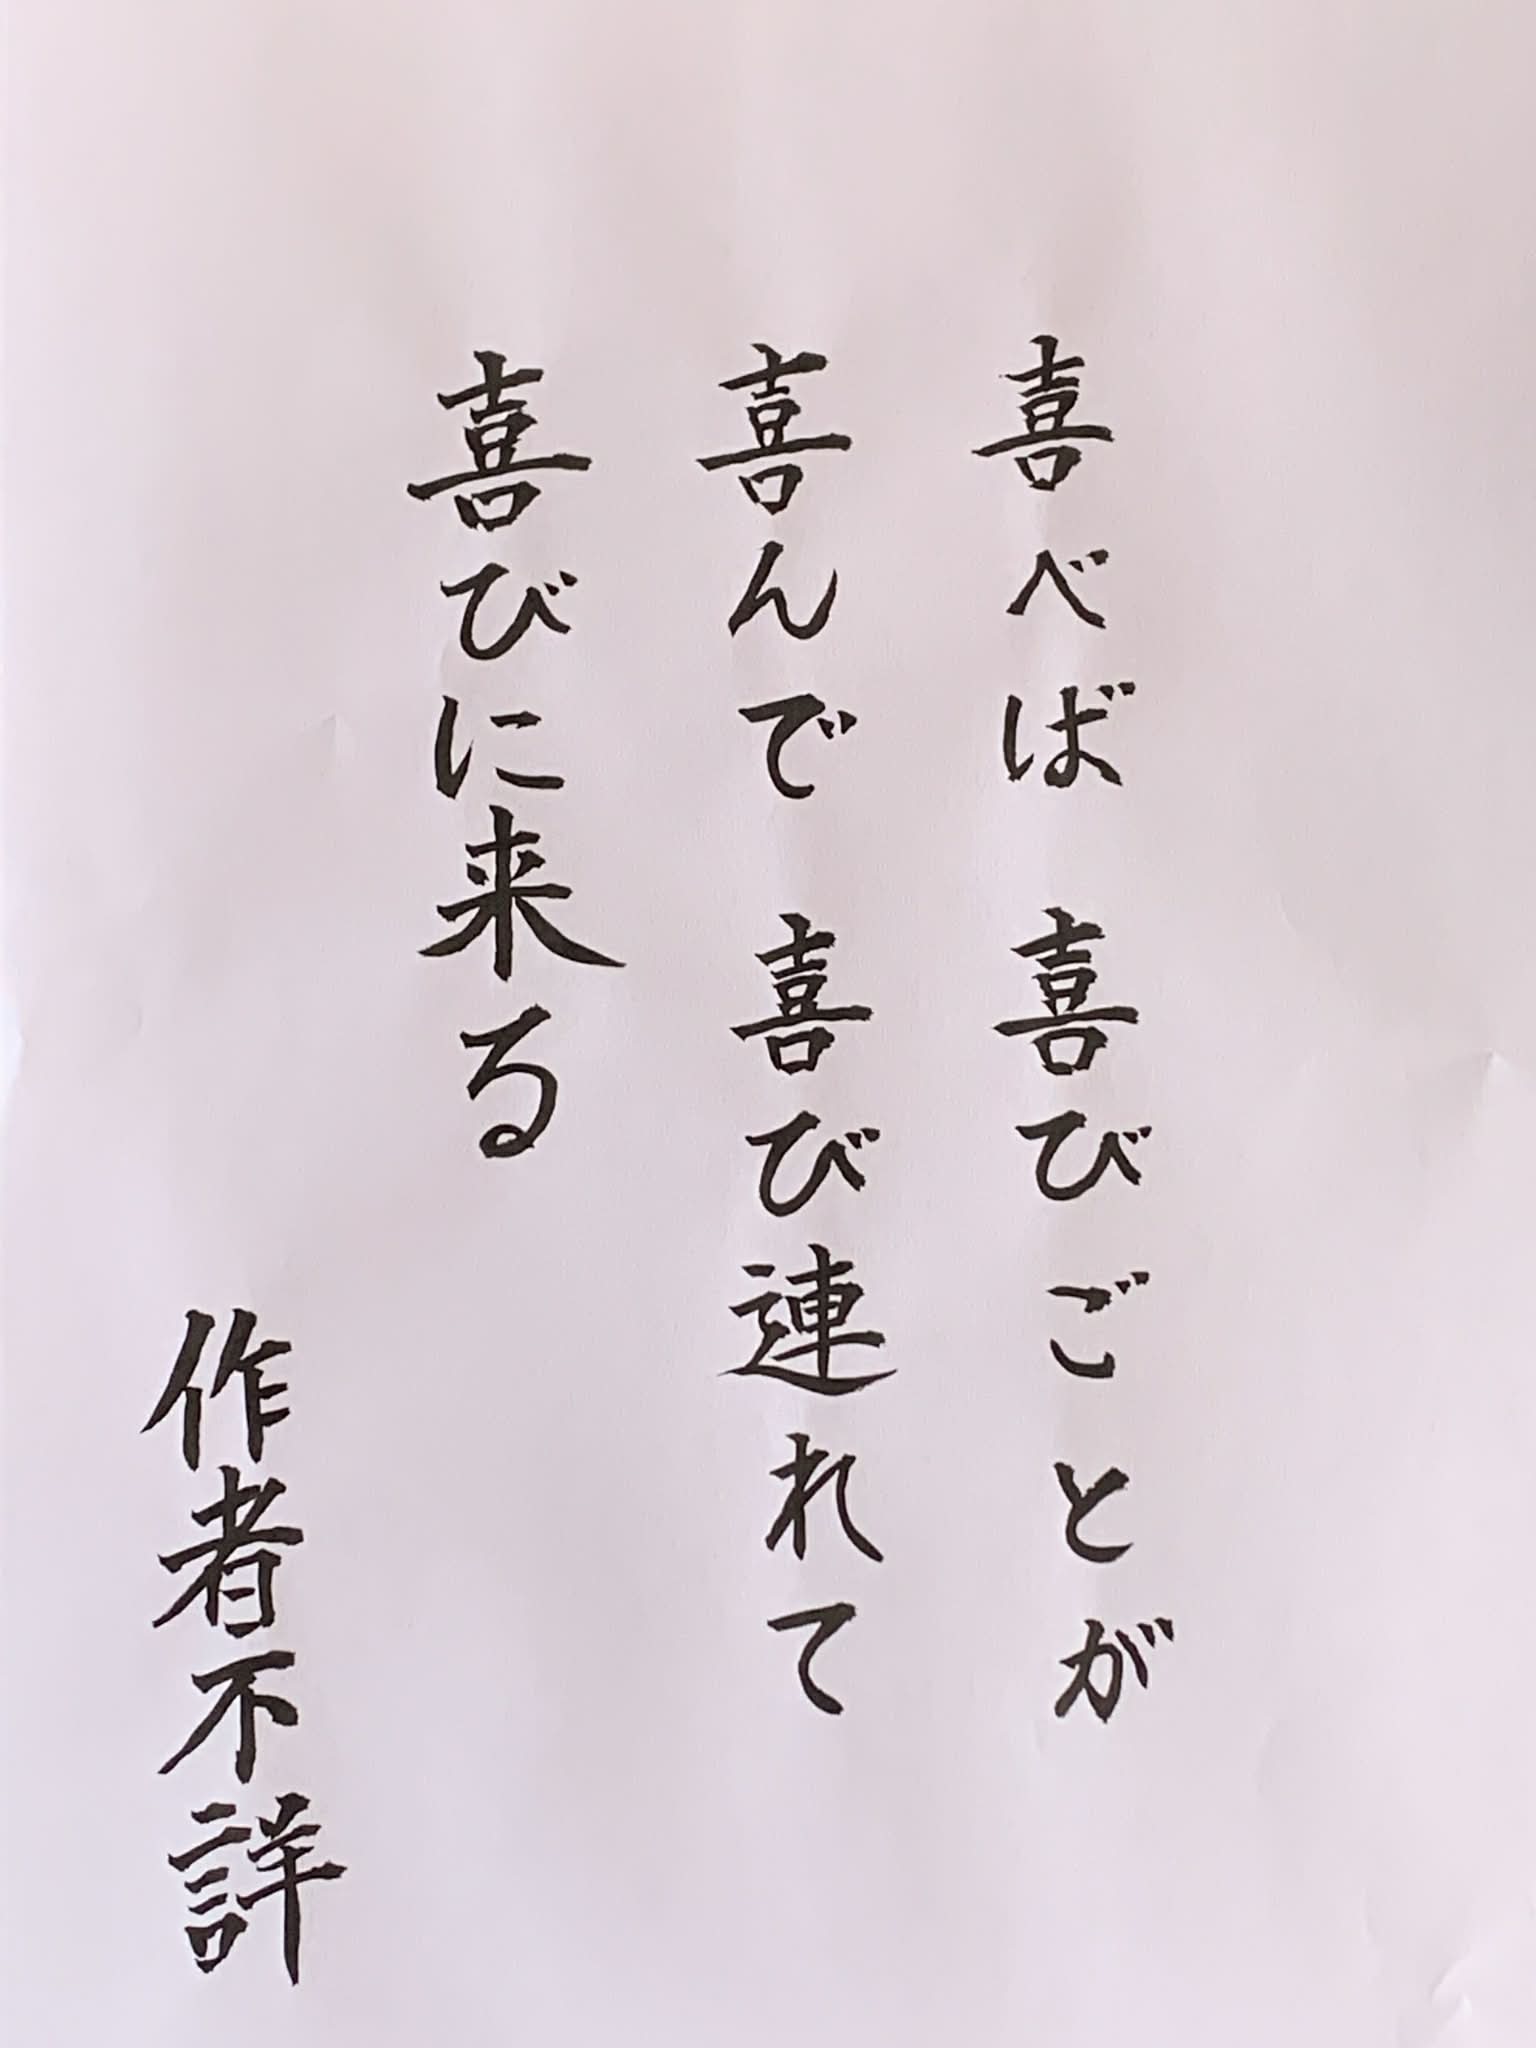 喜べば 喜びごとが
喜んで 喜び連れて
喜びに来る
作者不詳